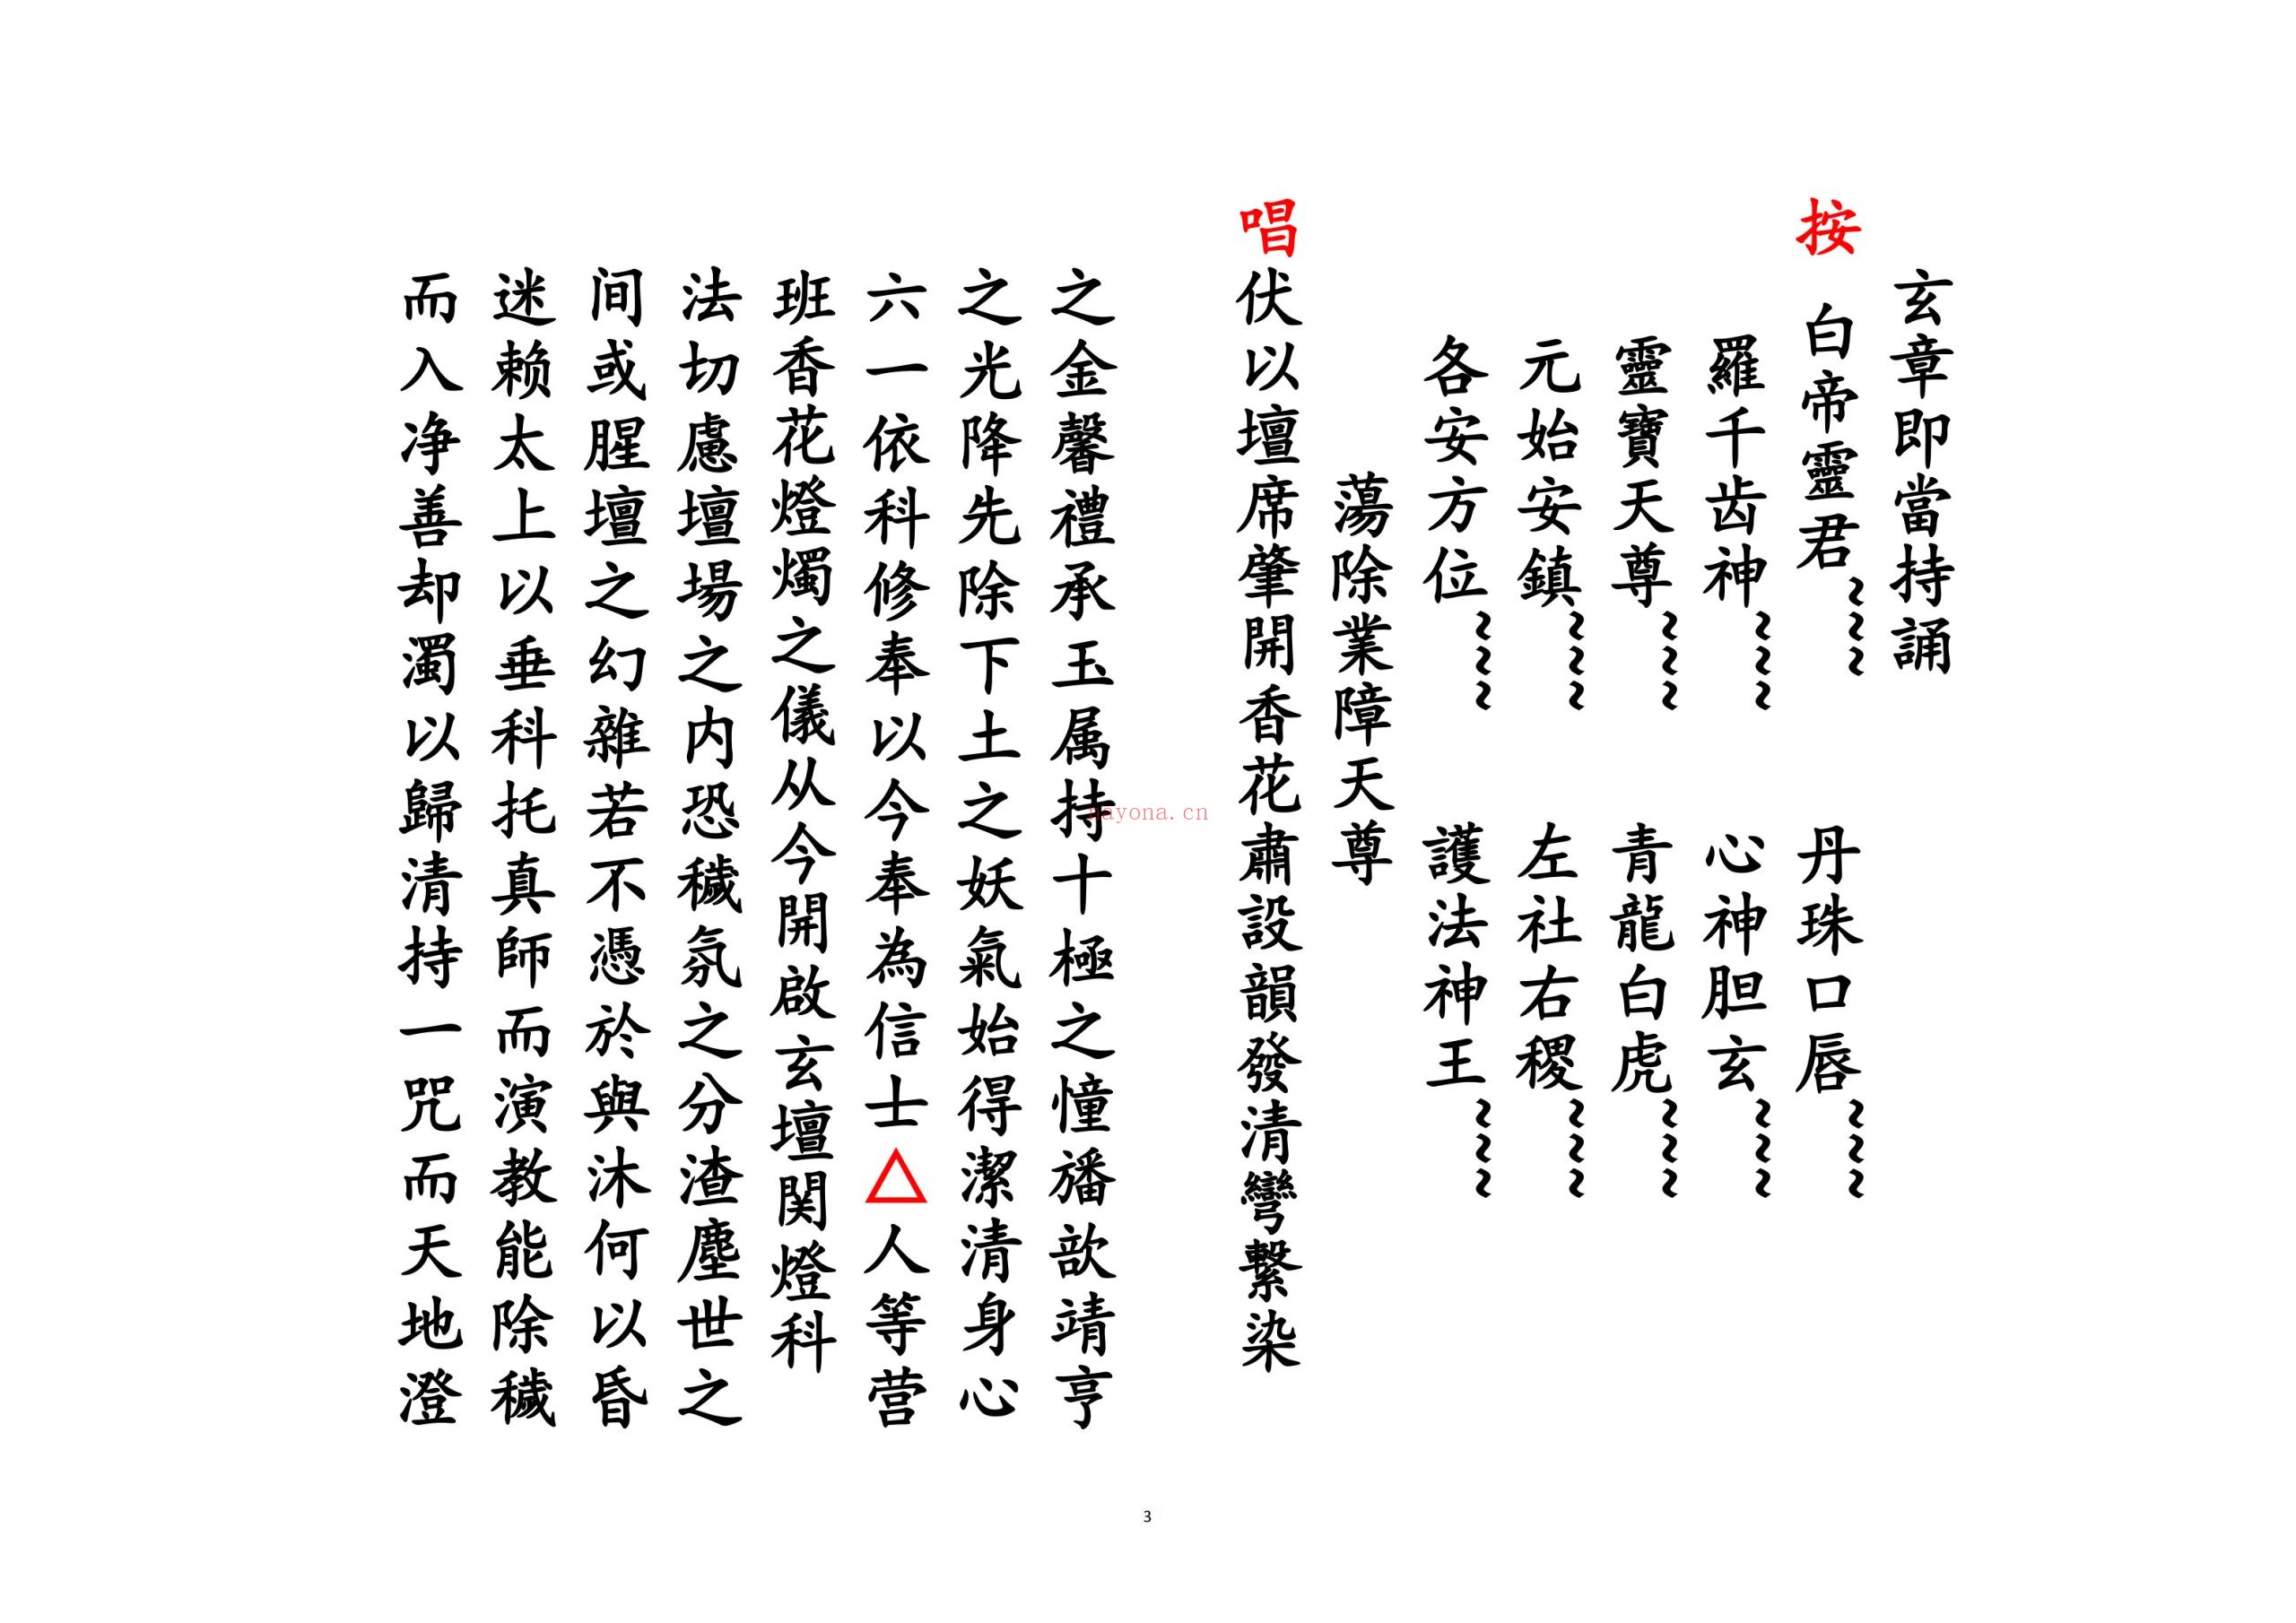 玄章即當持誦
按 白帝靈君~~~ 丹珠口唇~~~
羅千齿神~~~ 心神胆玄~~~
靈寶天尊~~~ 青龍白虎~~~
元始安鎮~~~ 左社右稷~~~
各安方位~~~ 護法神王~~~
蕩除業障天尊
唱伏以壇席肇開香花肅設韻發清彎繫染
之金馨禮承玉属持十極之憧旛歆靖亨
之光降先除下土之妖氣始得潔清身心
六一依科修奉以今奉為信士△人等营
班香花燈燭之儀从今開啟玄壇関燈科
法切慮壇場之内恐穢氛之分渣塵世之
间或腥壇之幻雜若不憑於與沐何以昏
迷赖太上以垂科托真師而演教能除穢
而入净善却濁以歸清持一咒而天地澄
nayona.cn
3